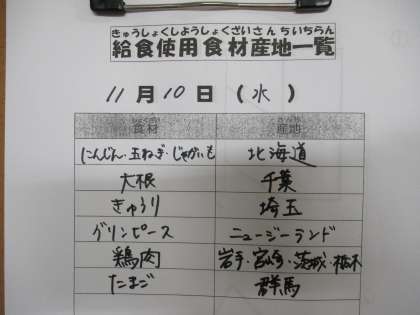 きゅうしょくしようしょくざいさんちいちらん
給食使用食材産地一覧
11月10日(水)
食材 産地
にんじん・玉ねぎ・じゃがいも 北海道
大根 千葉
きゅうり 埼玉
グリンピース ニュージーランド
鶏肉 岩手・宮崎・茨城・栃木
たまご 群馬